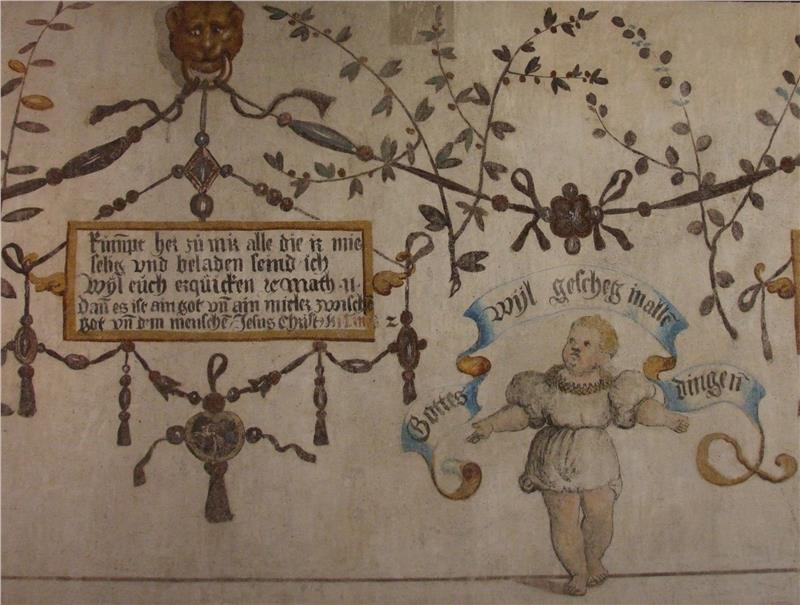 Kum̄pt her zu mir alle die ir mie
selig vnd beladen seind ich
wyl euch erquicken Math. 11.
dañ es ist ain got vñ ain mitler zwische
got vñ dem mensche Jesus Christ
Gottes wyl gescheh in alle dingen